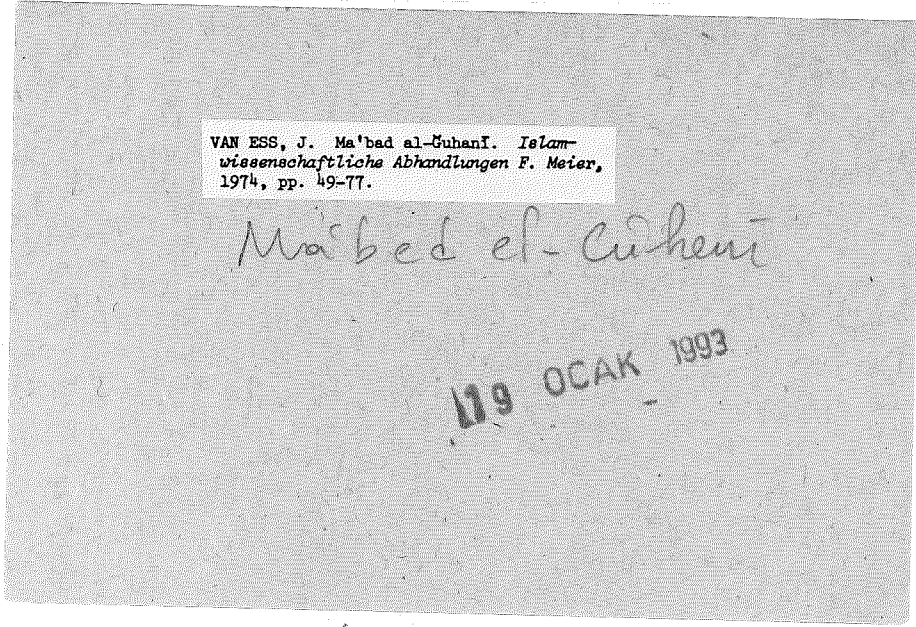 VAN ESS, J. Ma'bad al-Ǧuhanī. Islam-
wissenschaftliche Abhandlungen F. Meier,
1974, pp. 49-77.
Ma'bed el-Cüheni
19 OCAK 1993